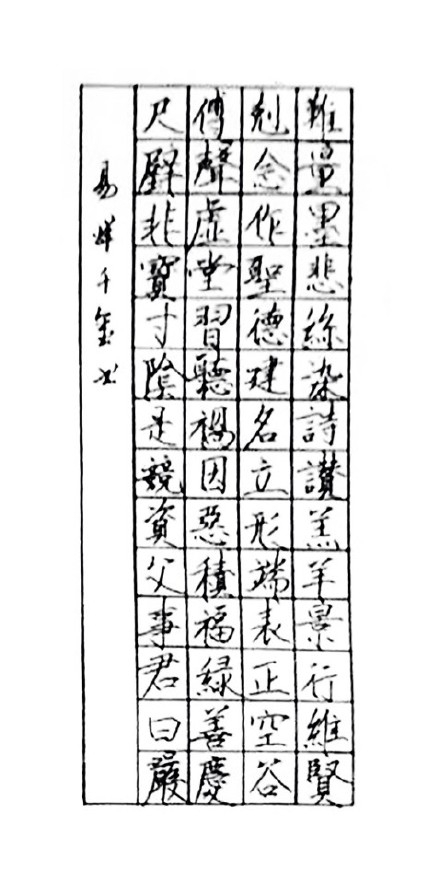 難量墨悲絲染詩讃羔羊景行維賢
剋念作聖德建名立形端表正空谷
傅聲虛堂習聽禍因惡積福緑善慶
尺璧非寶寸陰是競資父事君曰嚴
易烊千玺书